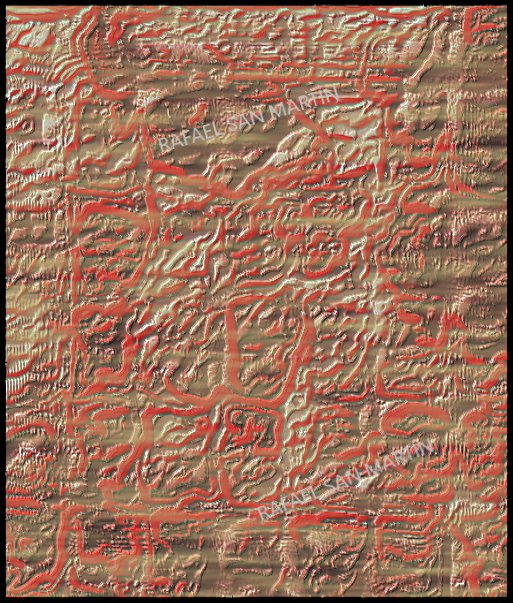 RAFAEL SAN MARTIN
RAFAEL SAN MARTIN